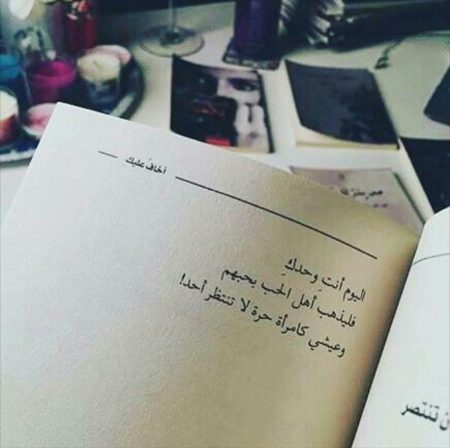 أخاف عليك
اليوم أنتِ وحدكِ
فليذهب أهل الحب بحبهم
وعيشي كامرأة حرة لا تنتظر أحد!
تنتصر